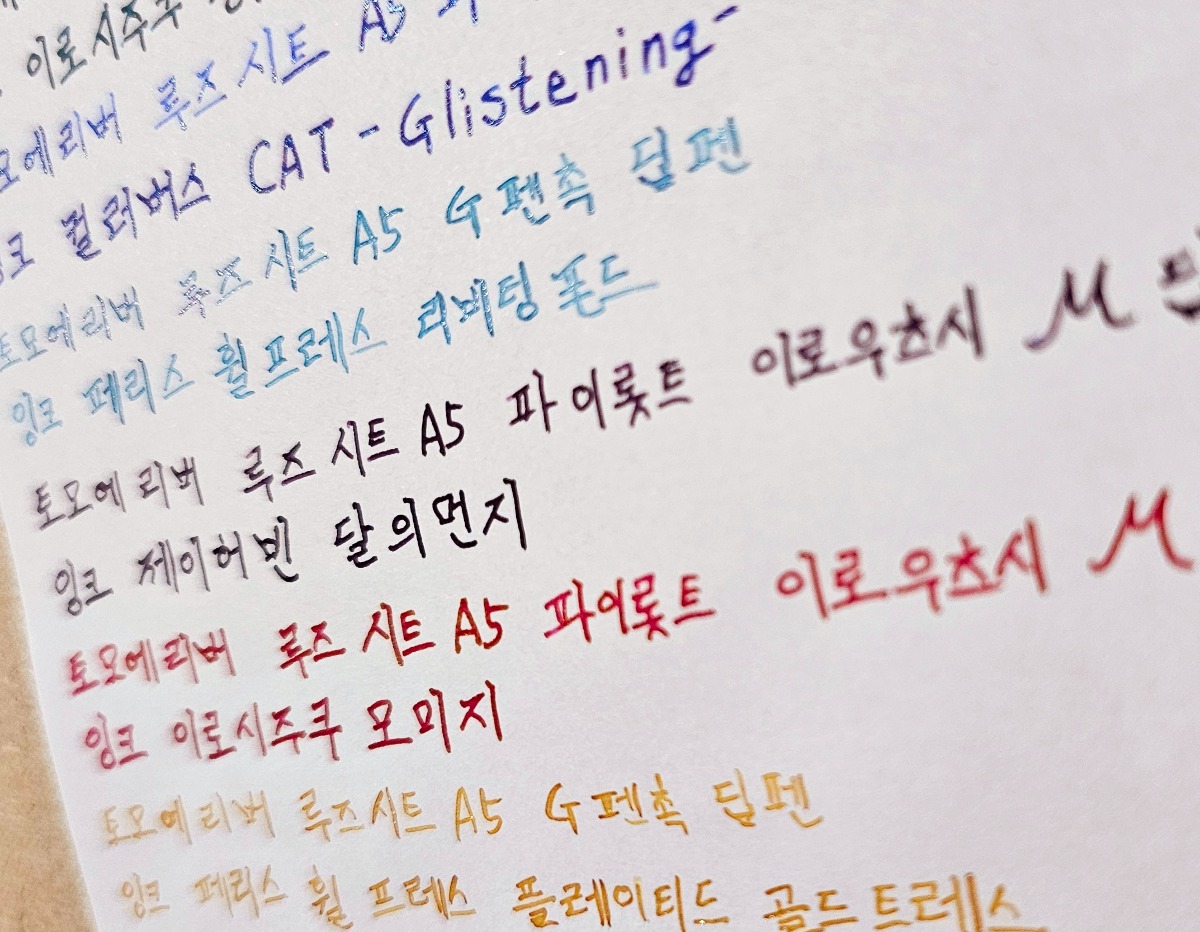 이로시주쿠
모에리버 루즈 시트 A5
잉크 컬러버스 CAT - Glistening -
토모에리버 루즈 시트 A5 G 펜촉 딥펜
잉크 페리스 휠프레스 리비팅 폰드
토모에리버 루즈 시트 A5 파이롯트 이로우츠시 M
잉크 제이허빈 달의먼지
토모에리버 루즈 시트 A5 파이롯트 이로우츠시 M
잉크 이로시주쿠 모미지
토모에리버 루즈 시트 A5 G 펜촉 딥펜
잉크 페리스 휠 프레스 플레이티드 골드 트레스